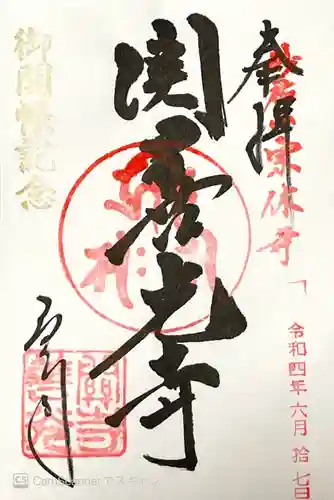 奉拝
宗休寺
令和四年六月拾七日
関善光寺
御開帳記念
CS CamScannerでスキャン